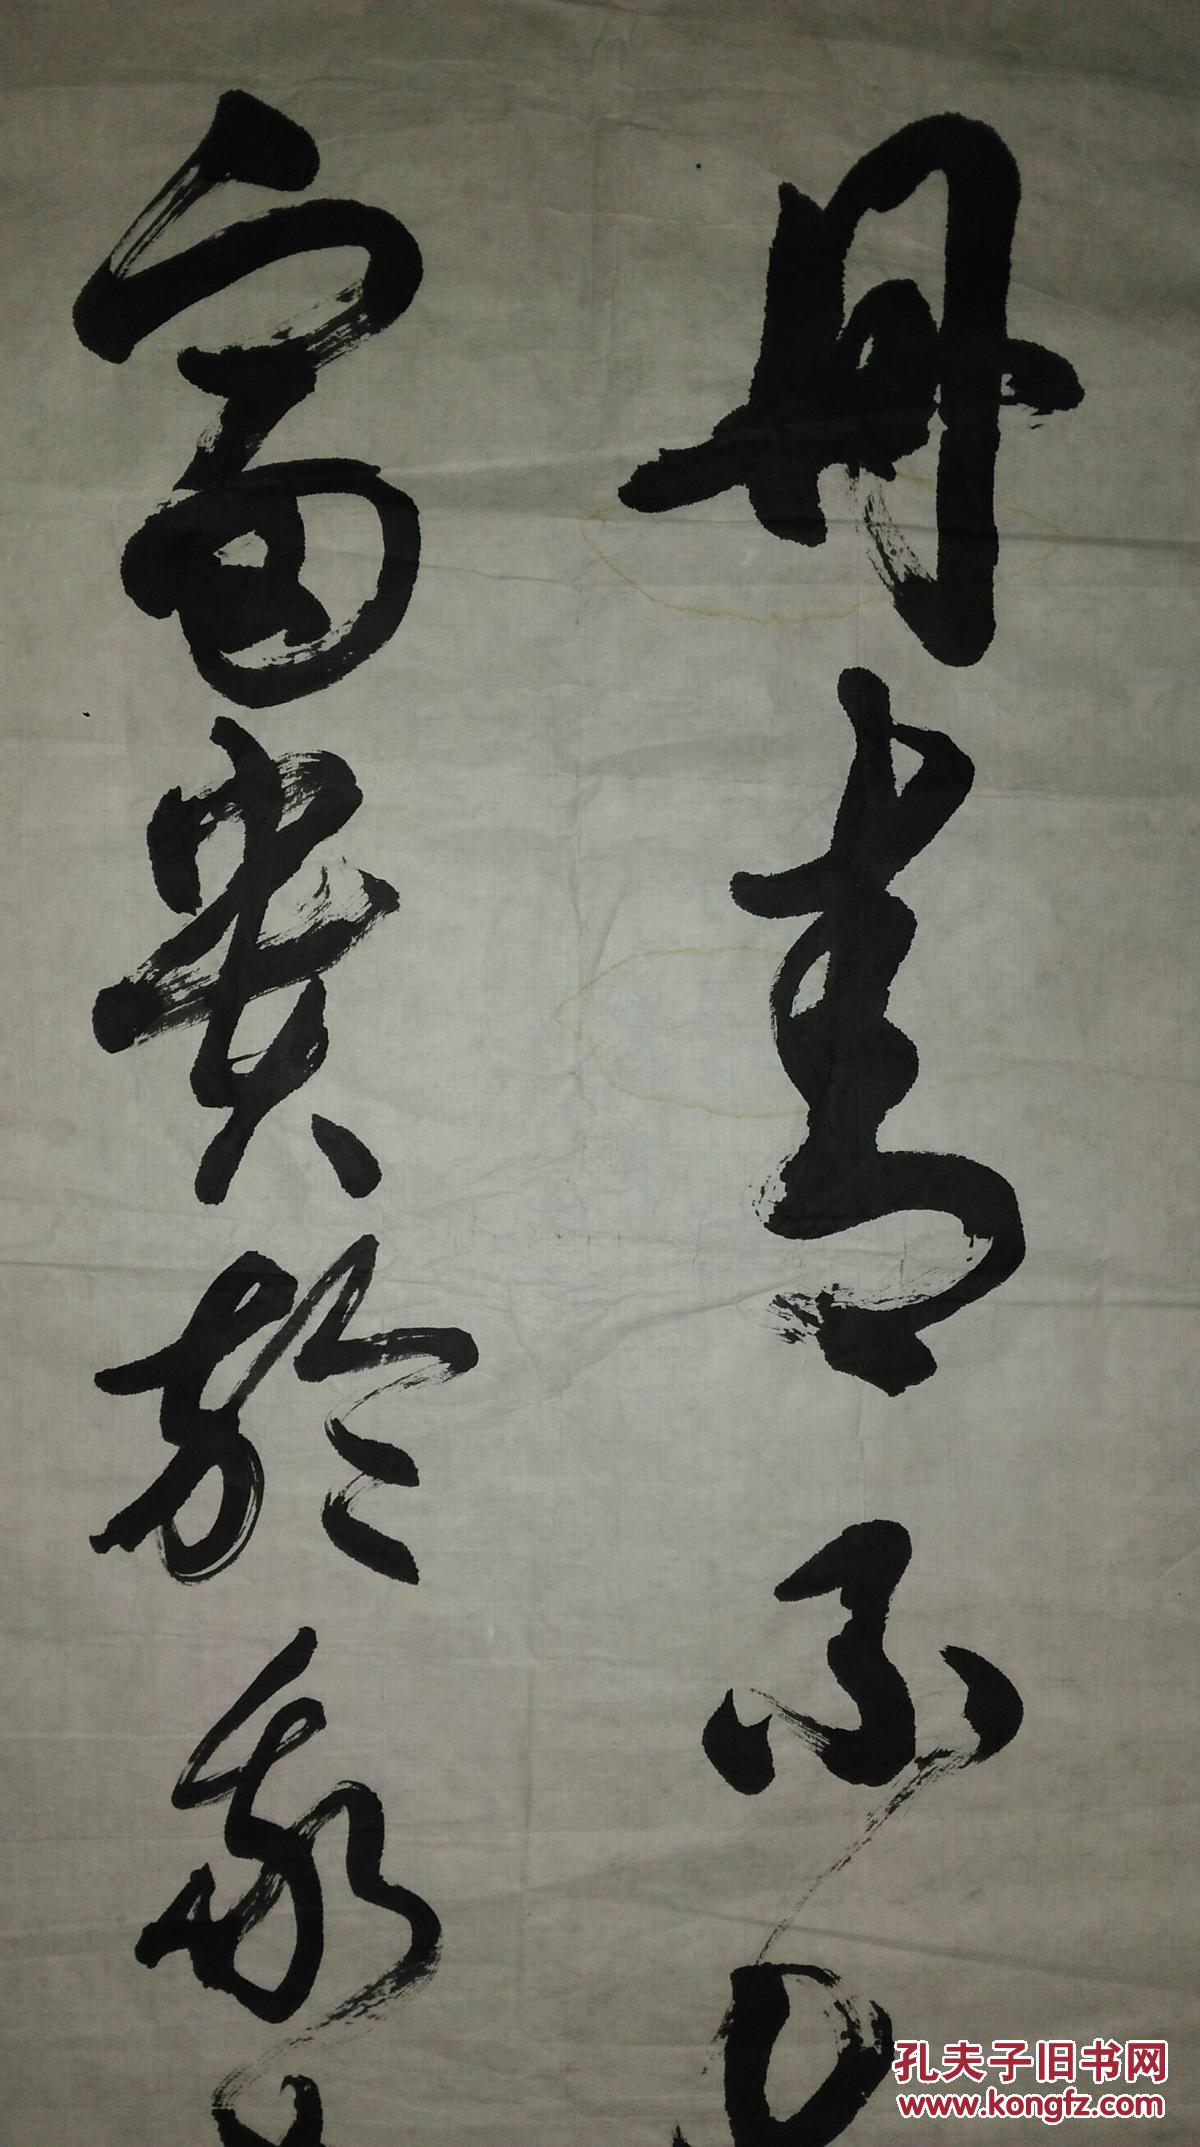 丹青不知
富贵於我
孔夫子旧书网
www.kongfz.com